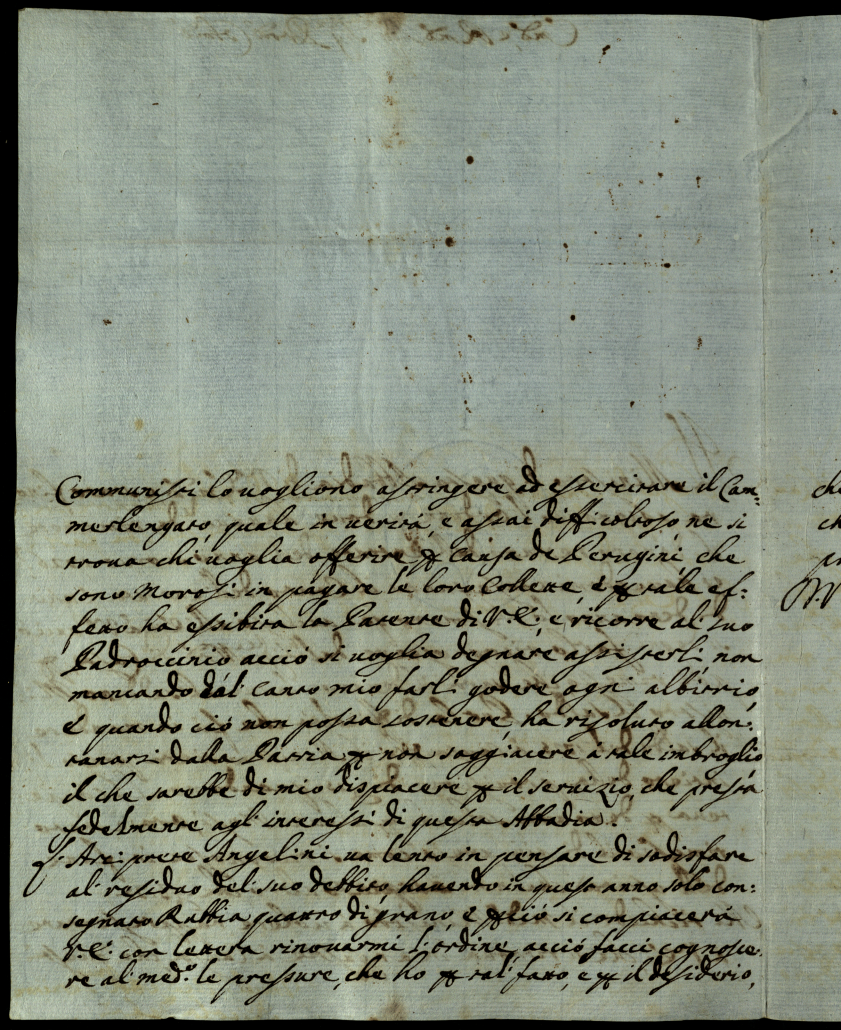 Communisti lo vogliono astringere ad essercitare il Cam=
merlengato, quale in verità, è assai difficoltoso, ne si
trova chi voglia offerire ꝑ causa de Perugini, che
sono morosi in pagare le loro Collette, è ꝑ tale ef=
fetto ha essibita la Patente di V.E:, e, ricorre al suo
Padroccinio acciò si voglia degnare assisterli non
mancando dal canto mio farli godere ogni albitrio,
è quando ciò non possa sostenere, ha risoluto allon:
tanarsi dalla Patria ꝑ non soggiacere à tale imbroglio
il che sarebbe di mio dispiacere, ꝑ il servizio, che presta
fedelmente agl'interessi di questa Abbadia.
L'Arciprete Angelini va lento in pensare di sodisfare
al residuo del suo debbito, havendo in quest'anno solo con:
segnato Rubbia quattro di grano, è ꝑciò si compiacerà
V.E: con lettera rinovarmi l'ordine, acciò facci cognosce:
re al med.º le pressure, che ho ꝑ tal fatto, e ꝑ il desiderio,